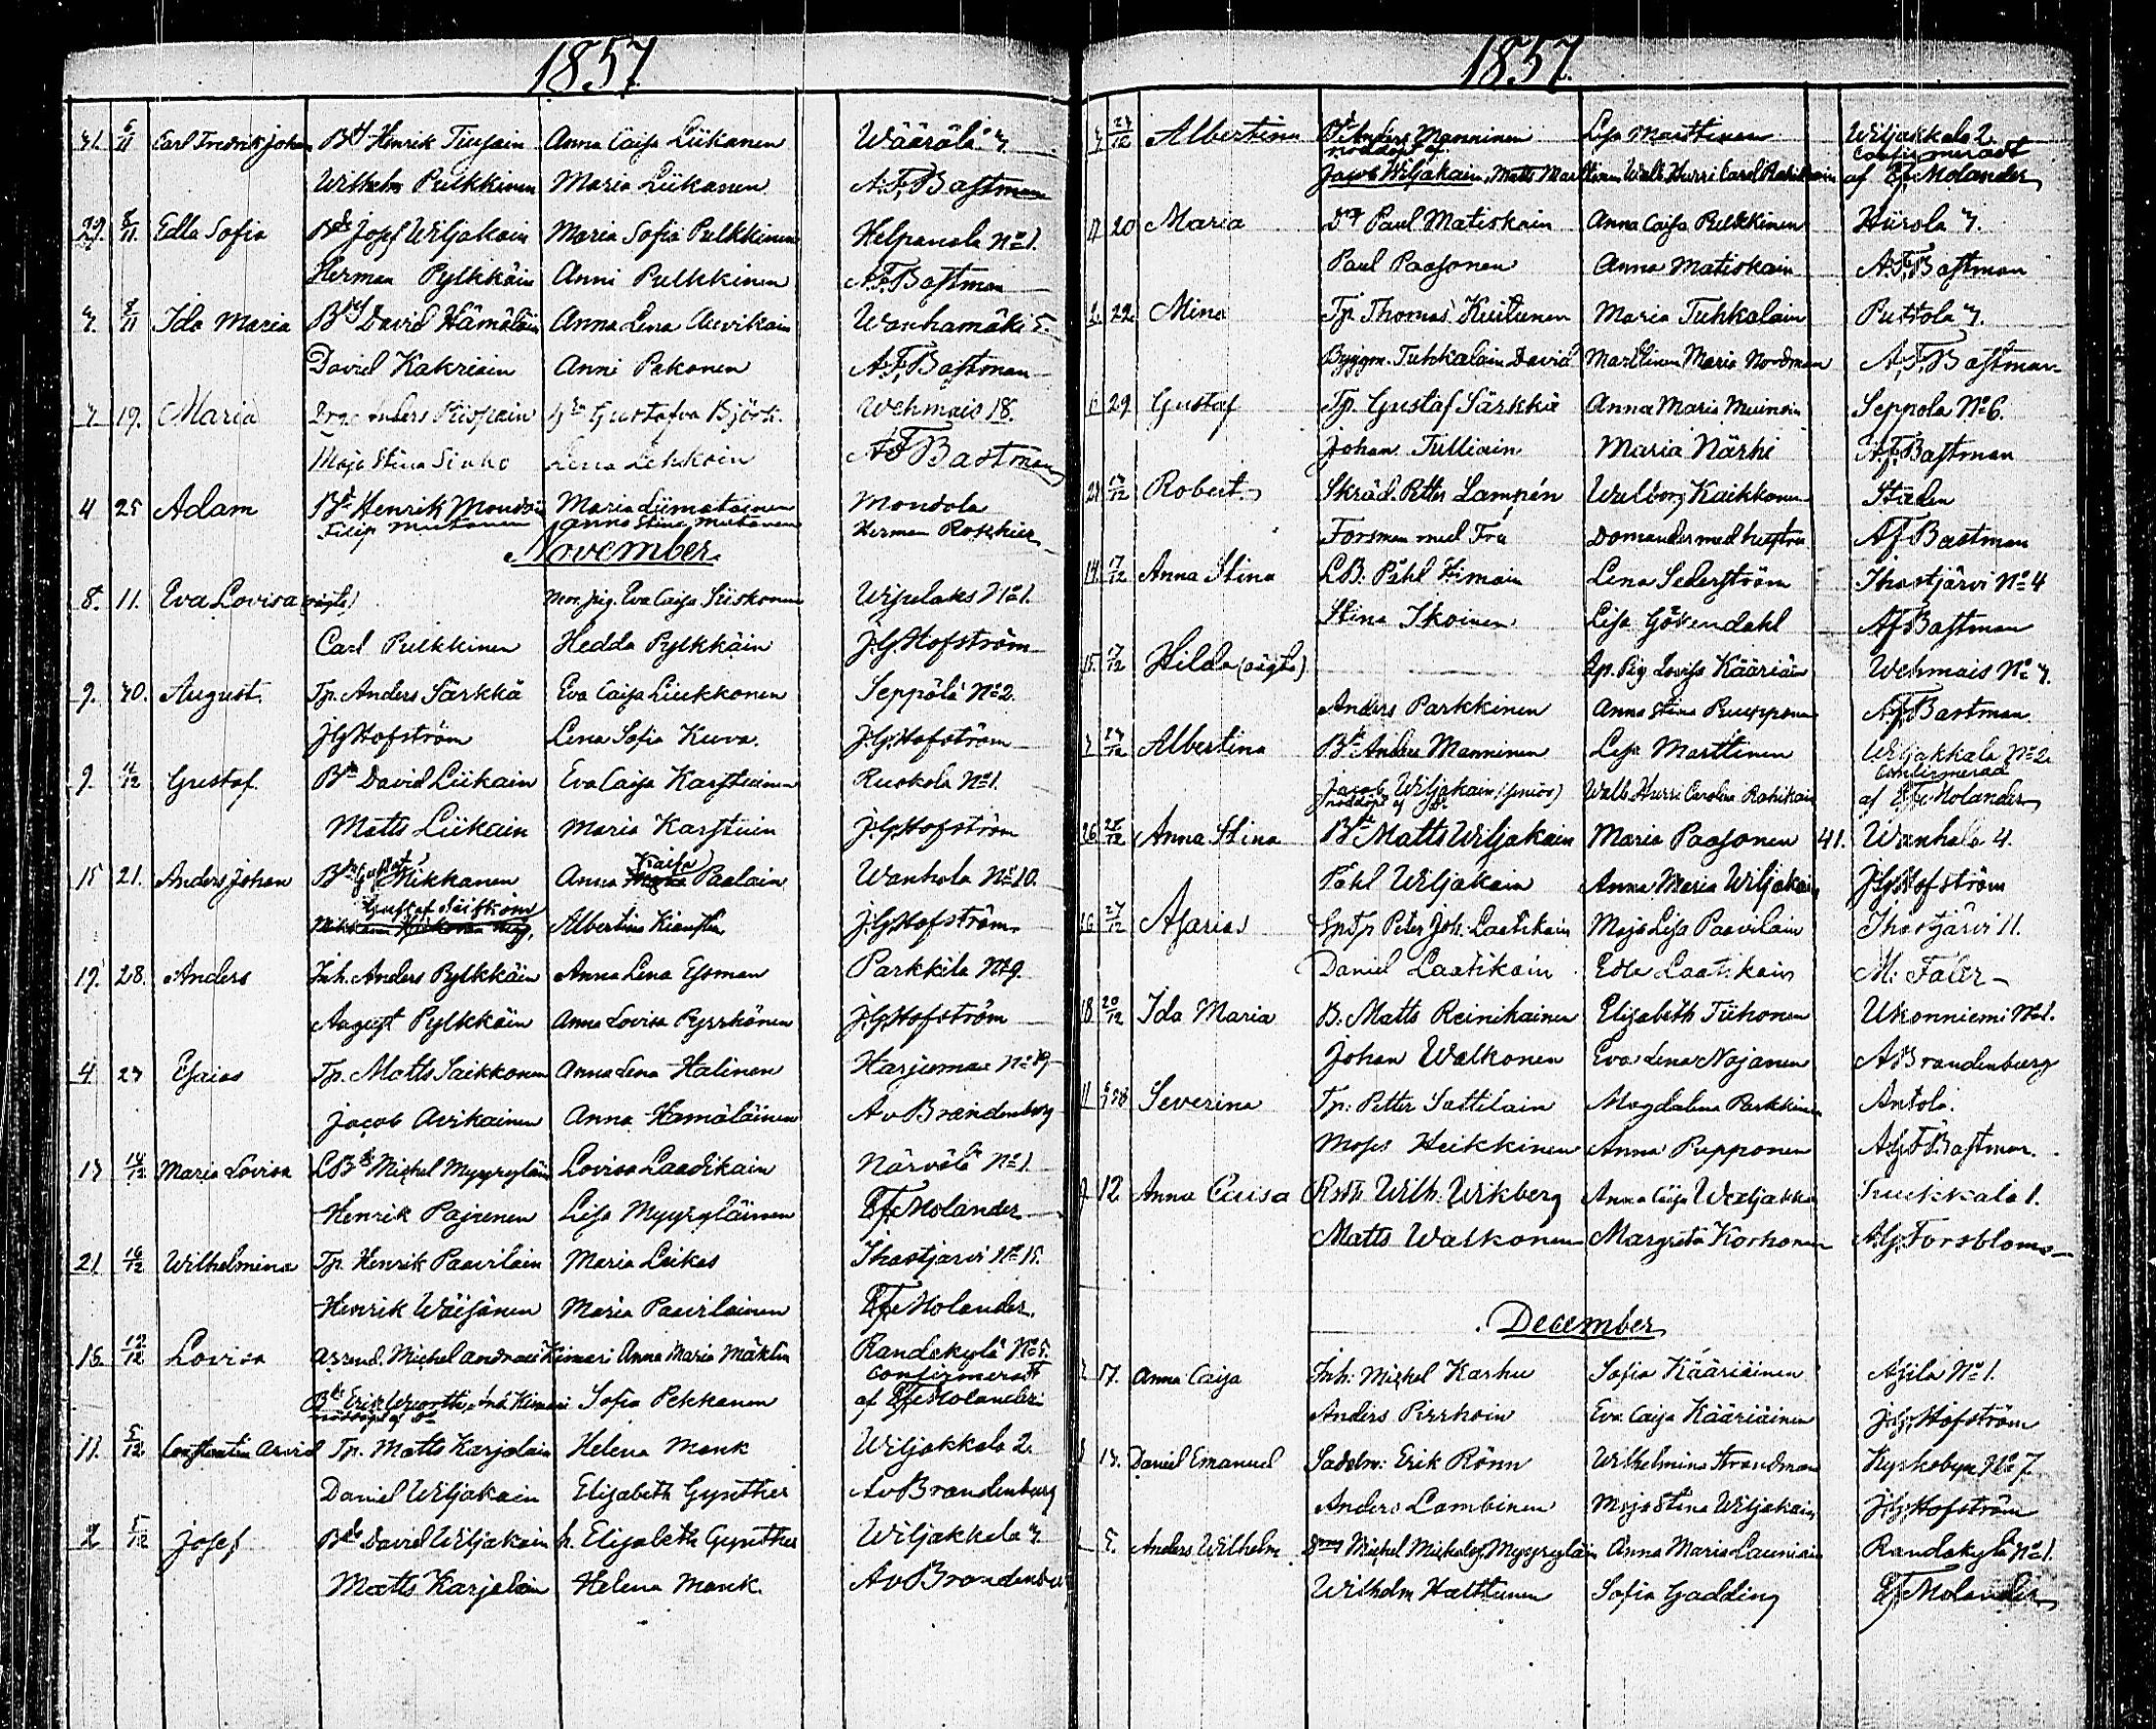 1857
31. 6/11 Carl Fredrik Johan Bd Henrik Tiusain Anna Caisa Liikanen Wäärälä 3.
Wilhelm Pulkkinen Maria Liikanen A.F. Bastman
29. 8/11 Edla Sofia Bde Josef Wiljakain Maria Sofia Pulkkinen Helpanala No 1.
Herman Pylkkäin Anni Pulkkinen A.F. Bastman
3. 8/11 Ida Maria Bd David Hämäläin Anna Lena Auvikain Wanhamäki 5.
David Kakriain Anni Pakonen A.F. Bastman
3. 19. Maria Anders Piispain Gustafva Björk. Wehmais 18.
Maja Stina Sinko Lena Lehikoin A F Bastman
4 25 Adam Bd Henrik Mondoin Maria Liimatainen Mondola
Filip Mutanen Anna Stina Mutanen Herman Roschier
November
8. 11. Eva Lovisa (oägta) Mor. pig. Eva Caisa Siiskonen Wipelaks No 1.
Carl Pulkkinen Hedda Pylkkäin J.G. Hofström
9. 30. August. Tp. Anders Särkkä Eva Caisa Liukkonen Seppölä No 2.
J G Hofström Lena Sofia Kuva. J.G. Hofström
9. 11/12 Gustaf. Bd David Liikain Eva Caisa Karstuinen Ruokola No 1.
Matts Liikain Maria Karstuin J.G. Hofström
15 21. Anders Johan Bde Gustaf Mikkanen Anna Kaisa Paalain Wanhola No 10.
Gustaf Albertina J.G. Hofström
19. 28. Anders Inh. Anders Pylkkäin Anna Lena Esman Parkkila No 9.
August Pylkkäin Anna Lovisa Pyrrhönen J.G. Hofström
4 23 Esaias Tp. Matts Saikkonen Anna Lena Halinen Harjumaa No 19
Jacob Avikainen Anna Hämäläinen A v Brandenburg
13 14/12 Maria Lovisa LBd Michel Myyryläin Lovisa Laadikain Närvölä No 1
Henrik Pajunen Lisa Myyryläinen E.F. Molander
21 16/12 Wilhelmina Tp. Henrik Paavilain Maria Laikas Ihastjärvi No 15.
Henrik Wäisänen Maria Paavilainen E.F. Molander.
16. 19/12 Lovisa Arrend. Michel Andraei Kimari Anna Maria Mäklin Randakylä No 5.
confirmeradt
Bde Erik And. Kimari Sofia Pekkanen af E.F. Molander.
nöddöpt af do
11. 5/12 Constantin Arvid Tp. Matts Karjalain Helena Monk Wiljakkala 2.
Daniel Wiljakain Elisabeth Gynther A v Brandenburg
2 5/12 Josef Bde David Wiljakain h. Elisabeth Gynther Wiljakkala 3.
Matts Karjalain Helena Monk. A v Brandenburg
1857.
3 23/12 Albertina Bd Anders Manninen Lisa Marttinen Wiljakkala 2.
nöddöpt af confirmeradt
Jacob Wiljakain, Matts Marttinen Walb. Hurri Carol Rahikain af E.F. Molander
20 Maria Paul Matiskain Anna Caisa Pulkkinen Hiirola 3.
Paul Paasonen Anna Matiskain A.F. Bastman
22 Mina Tp. Thomas Kuitunen Maria Tuhkalain Puttola 3.
Byggm. Tuhkalain David Marttinen Maria Nordman A.F. Bastman
29 Gustaf Tp. Gustaf Särkkä Anna Maria Muinoin Seppola No 6.
Johan Tulliain Maria Närhi A.F. Bastman
Robert Skräd. Petter Lampén Walborg Kaikkonen Staden
Forsman med Fru Domander med hustru A F Bastman
14 17/12 Anna Stina LB. Påhl Himain Lena Sederström Ihastjärvi No 4
Stina Ikoinen Lisa Gökendahl A F Bastman
15. 17/12 Hilda (oägta) Tp. Pig Lovisa Kääriäin Wehmais No 3.
Anders Parkkinen Anna Stina Ruupponen A.F. Bastman.
3 23/12 Albertina Bd Anders Manninen Lisa Marttinen Wiljakkala No 2.
confirmerad
Jacob Wiljakain (junior) Walb Hurri Carolina Rahikain af E.F. Molander
nöddöpt af do
26 25/12 Anna Stina Bd Matts Wiljakain Maria Paasonen 41. Wanhala 4.
Påhl Wiljakain Anna Maria Wiljakain J.G. Hofström
16 27/12 Asarias Tp Peter Joh. Laatikain Maja Lisa Paavilain Ihastjärvi 11.
Daniel Laatikain Edla Laatikain M. Faler
18 20/12 Ida Maria B. Matts Reinikainen Elisabeth Tiihonen Ukonniemi No 1.
Johan Walkonen Eva Lena Nojanen A Brandenburg
11 Severina Tp: Petter Sattilain Magdalena Parkkinen Antola.
Moses Heikkinen Anna Pupponen A.F. Bastman.
12 Anna Caisa Wilh. Wikberg Anna Caisa Weeljakka 1.
Matts Walkonen Margreta Korhonen A.G. Forsblom
December
17. Anna Caisa Inh. Michel Karhu Sofia Kääriäinen Asila No 1.
Anders Pirrhoin Eva Caisa Kääriäinen J.G. Hofström
13. Daniel Emanuel Sadelm: Erik Rönn Wilhelmina Strandman Kyrkobyn No 7
Anders Lambinen Maja Stina Wiljakain J.G. Hofström
5. Anders Wilhelm Michel Michelss. Myyryläin Anna Maria Launiain Randakylä No 1.
Wilhelm Halttunen Sofia Gadding E.F. Molander